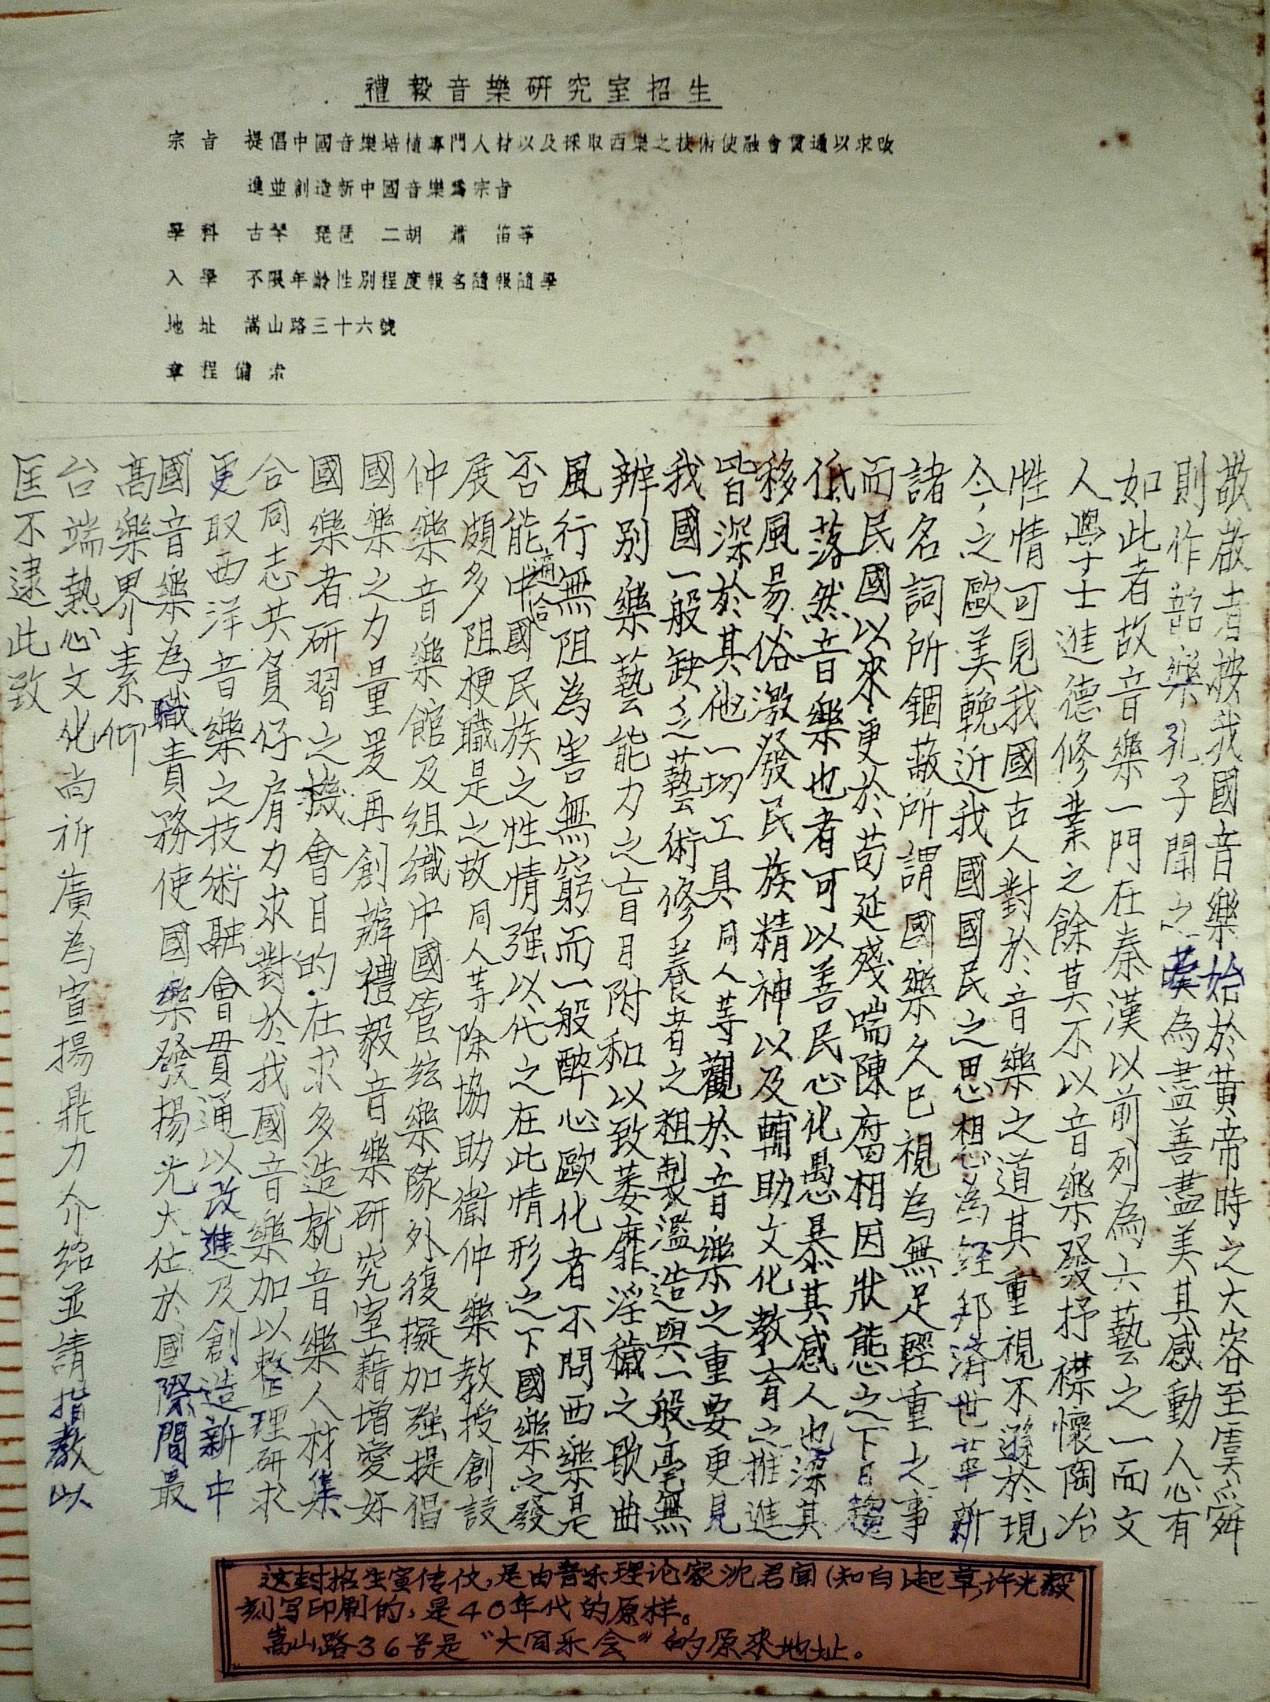 禮毅音樂研究室招生
宗旨 提倡中國音樂培植專門人材以及採取西樂之技術使融會貫通以求改
進並創造新中國音樂爲宗旨
學科 古琴 琵琶 二胡 簫 笛等
入學 不限年齡性別程度報名隨報隨學
地址 嵩山路三十六號
章程備索
敬啟者按我國音樂始於黃帝時之大容至虞舜
則作韶樂孔子聞之嘆為盡善盡美其感動人心有
如此者故音樂一門在秦漢以前列為六藝之一而文
人學士進德修業之餘莫不以音樂發抒襟懷陶冶
性情可見我國古人對於音樂之道其重視不遜於現
今之歐美輓近我國國民之思想為經邦濟世革新
諸名詞所錮蔽所謂國樂久已視為無足輕重之事
而民國以來更於苟延殘喘陳腐相因狀態之下日趨
低落然音樂也者可以善民心化愚暴其感人也深其
移風易俗激發民族精神以及輔助文化教育之推進
皆深於其他一切工具同人等觀於音樂之重要更見
我國一般缺乏藝術修養者之粗製濫造與一般毫無
辨別樂藝能力之盲目附和以致萎靡淫穢之歌曲
風行無阻為害無窮而一般醉心歐化者不問西樂是
否能適合中國民族之性情強以代之在此情形之下國樂之發
展頗多阻梗職是之故同人等除協助衛仲樂教授創設
仲樂音樂館及組織中國管絃樂隊外復擬加強提倡
國樂之力量爰再創辦禮毅音樂研究室藉增愛好
國樂者研習之機會目的在求多造就音樂人材集
合同志共負仔肩力求對於我國音樂加以整理研求
更取西洋音樂之技術融會貫通以改進及創造新中
國音樂為職責務使國樂發揚光大位於國際間最
高樂界素仰
台端熱心文化尚祈廣為宣揚鼎力介紹並請指教以
匡不逮此致
这封招生宣传仗，是由音乐理论家沈君闻（知白）起草许光毅
刻写印刷的，是40年代的原样。
嵩山路36号是“大同乐会”的原来地址。